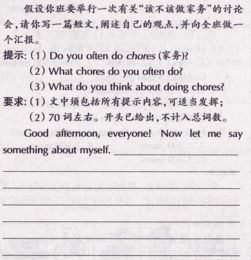 假设你班要举行一次有关“该不该做家务”的讨论
会,请你写一篇短文,阐述自己的观点,并向全班做一
个汇报。
提示:(1) Do you often do chores (家务)?
(2) What chores do you often do?
(3) What do you think about doing chores?
要求:(1) 文中须包括所有提示内容,可适当发挥;
(2) 70 词左右。开头已给出,不计入总词数。
Good afternoon, everyone! Now let me say
something about myself.